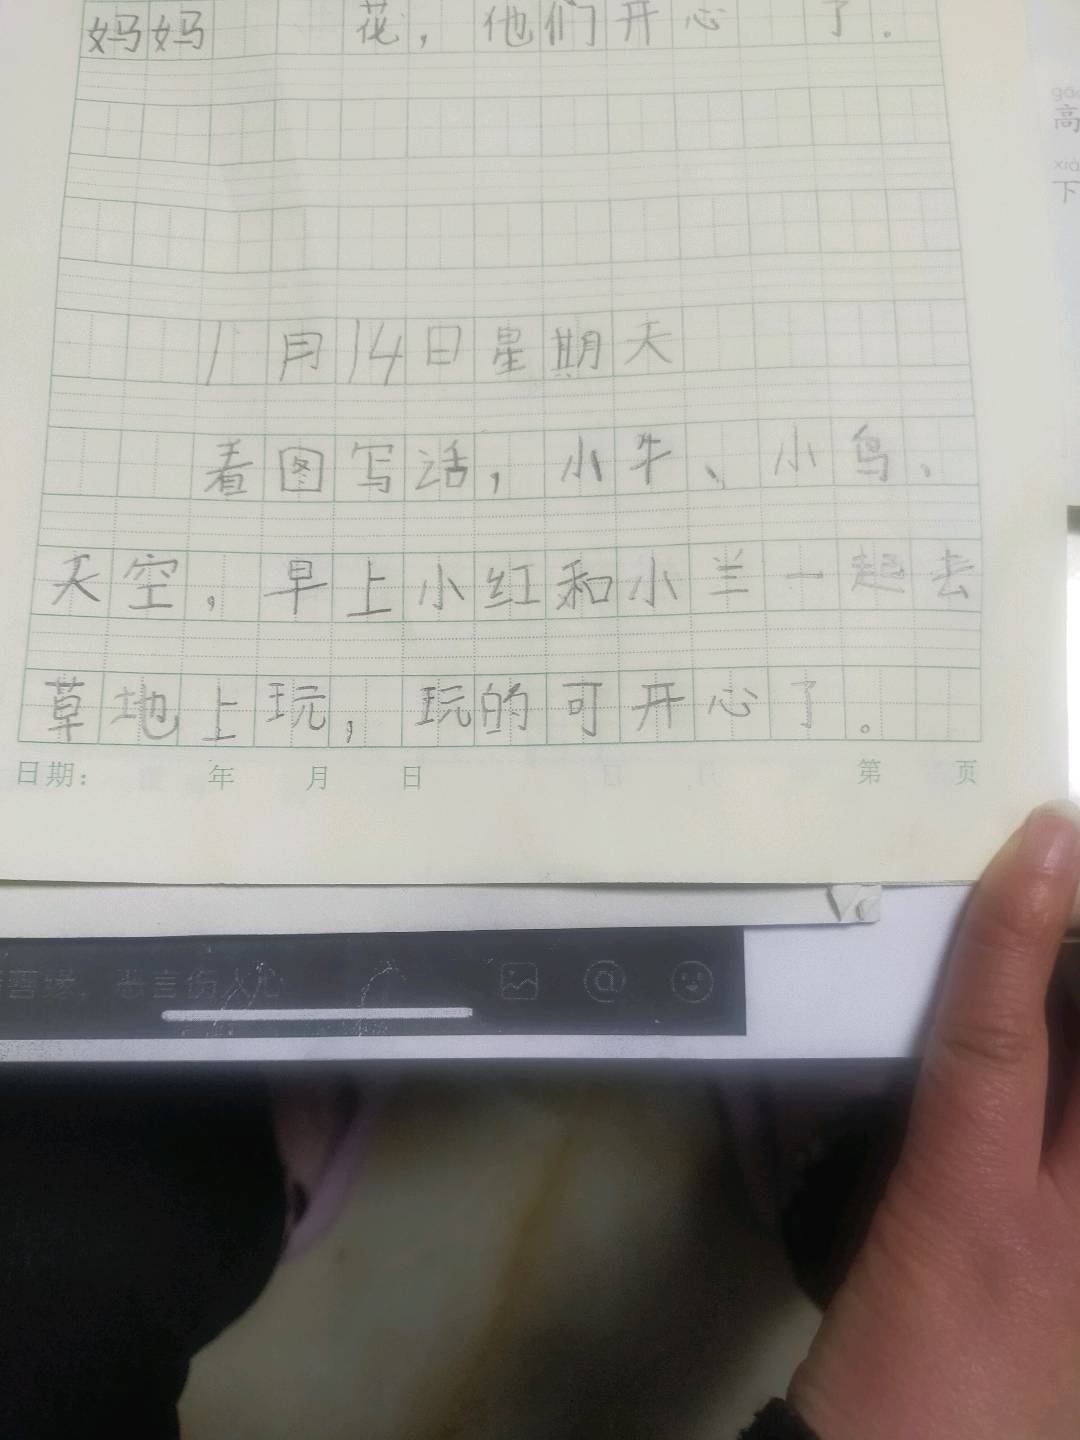 妈妈 花，他们开心 了。
1月14日星期天
看图写话，小牛、小鸟、
天空，早上小红和小兰一起去
草地上玩，玩的可开心了。
日期： 年 月 日 第 页
gāo
高
xià
下
恶言伤人心
@